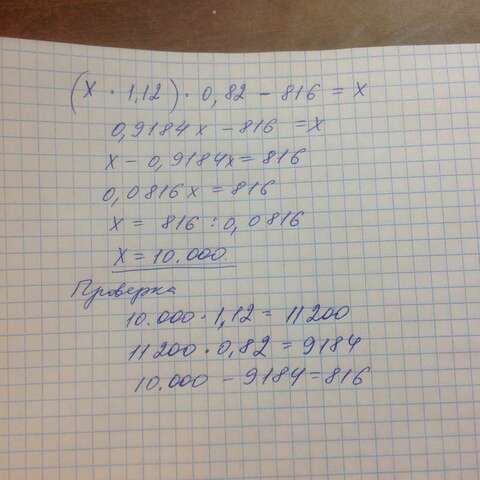 (X · 1,12) · 0,82 - 816 = X
0,9184x - 816 = X
X - 0,9184x = 816
0,0816x = 816
X = 816 : 0,0816
X = 10.000.
Проверка
10.000 · 1,12 = 11200
11200 · 0,82 = 9184
10.000 - 9184 = 816